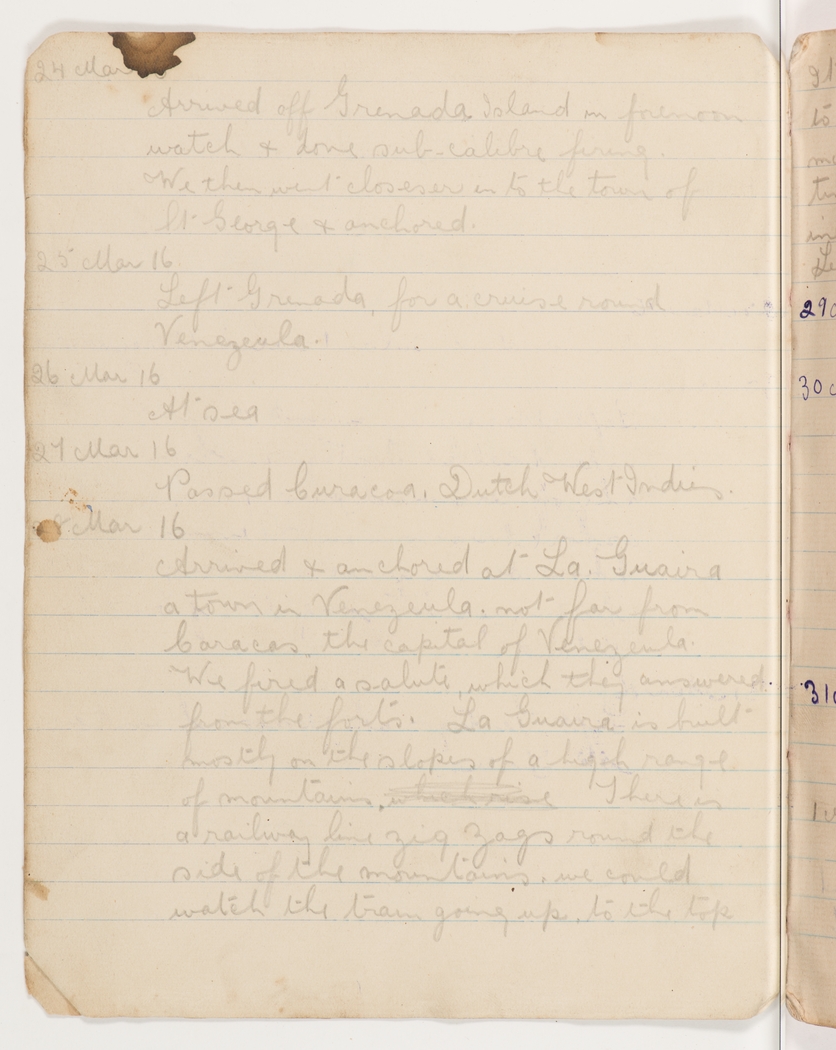 24 Mar
Arrived off Grenada Island in forenoon
watch & done sub-calibre firing.
We then went closeser in to the town of
St George & anchored.
25 Mar 16.
Left Grenada, for a cruise round
Venezeula.
26 Mar 16
At sea
27 Mar 16
Passed Curacoa. Dutch West Indies.
8 Mar 16
Arrived & anchored at La. Guaira
a town in Venezeula. not far from
Caracas, the capital of Venezeula.
We fired a salute, which they answered.
from the forts. La Guaira is built
mostly on the slopes of a high range
of mountains, which rise There is
a railway line zig zags round the
side of the mountains. we could
watch the train going up. to the top
to
in
29
30
31